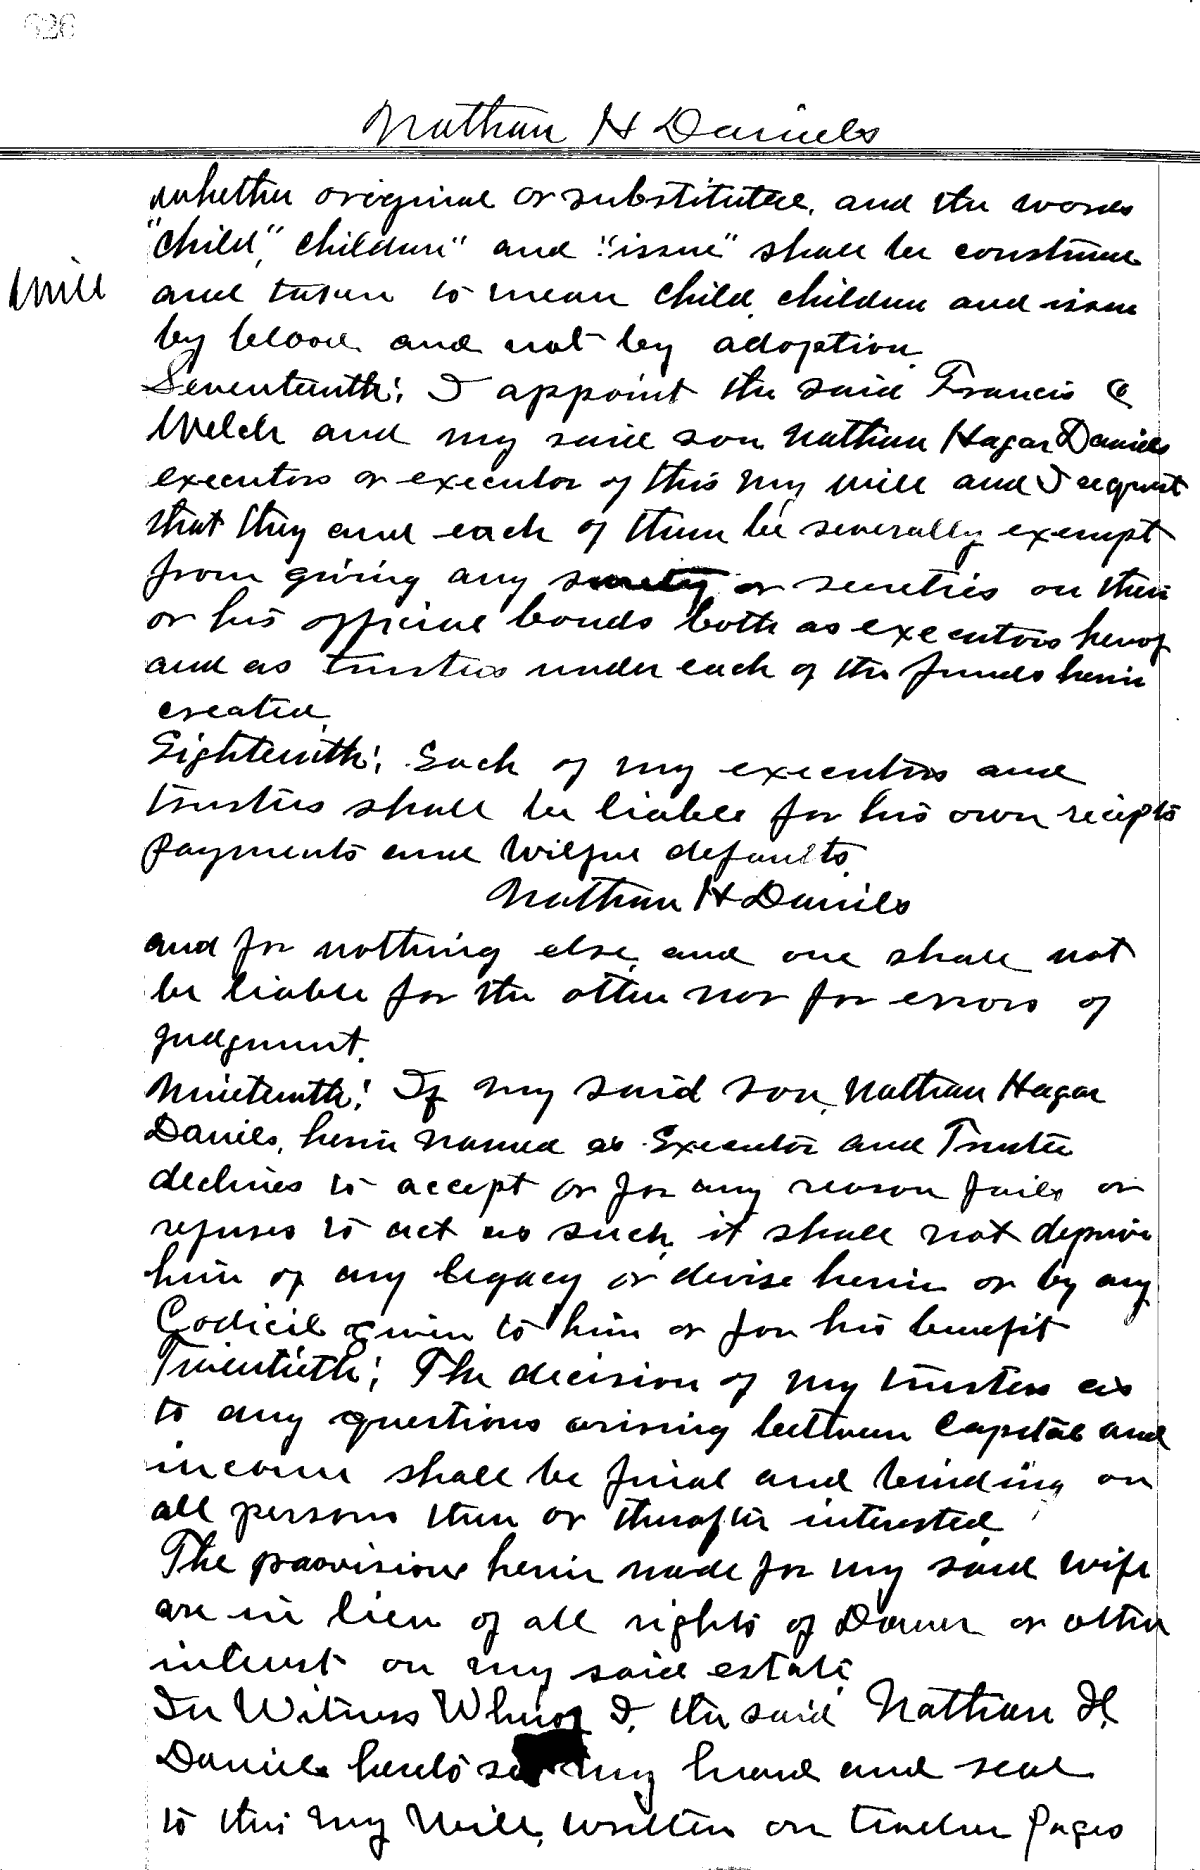 626
Nathan H Daniels
whether original or substituted, and the words
"child," children" and "issue" shall be construed
Will
and taken to mean child, children and issue
by blood and not by adoption.
Seventeenth: I appoint the said Francis C
Welch and my said son Nathan Hagar Daniels
executors or executor of this my will and I request
that they and each of them be severally exempt
from giving any surety or sureties on their
or his official bonds both as executors hereof
and as trustees under each of the funds herein
created.
Eighteenth: Each of my executors and
trustees shall be liable for his own receipts
payments and wilful defaults.
Nathan H Daniels
and for nothing else, and one shall not
be liable for the other nor for errors of
judgment.
Nineteenth: If my said son, Nathan Hagar
Daniels, herein named as Executor and Trustee
declines to accept or for any reason fails or
refuses to act as such, it shall not deprive
him of any legacy or devise herein or by any
Codicil given to him or for his benefit
Twentieth: The decision of my trustees as
to any questions arising between Capital and
income shall be final and binding on
all persons then or thereafter interested.
The provisions herein made for my said wife
are in lieu of all rights of Dower or other
interest on my said estate.
In Witness Whereof I, the said Nathan H.
Daniels hereto set my hand and seal
to this my Will, written on twelve pages